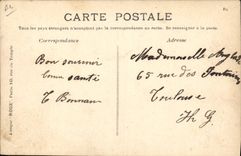 CARTE POSTALE
Tous les pays étrangers n'acceptent pas la correspondance au recto. (Se renseigner à la poste).
Correspondance
Adresse
Bon souvenir
bonne santé
T Bonnan
Mademoiselle
65 rue des
Toulouse
Hte G.